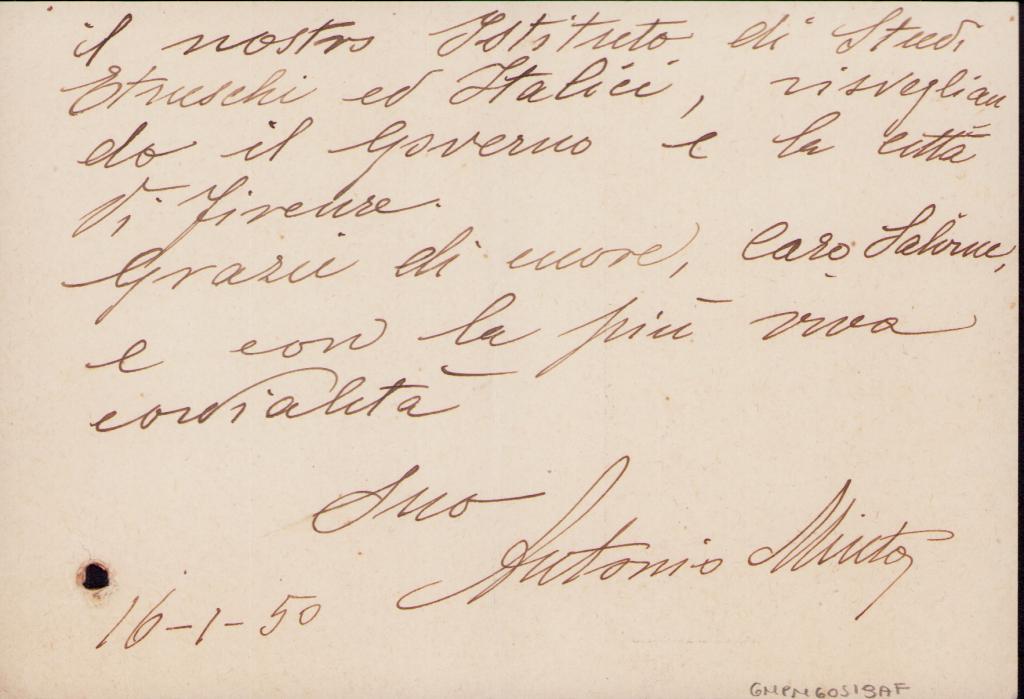 il nostro Istituto di Studi
Etruschi ed Italici, risveglian
do il Governo e la città
di Firenze.
Grazie di cuore, Caro Salvini,
e con la più viva
cordialità
Suo
Antonio Minto
16-1-50